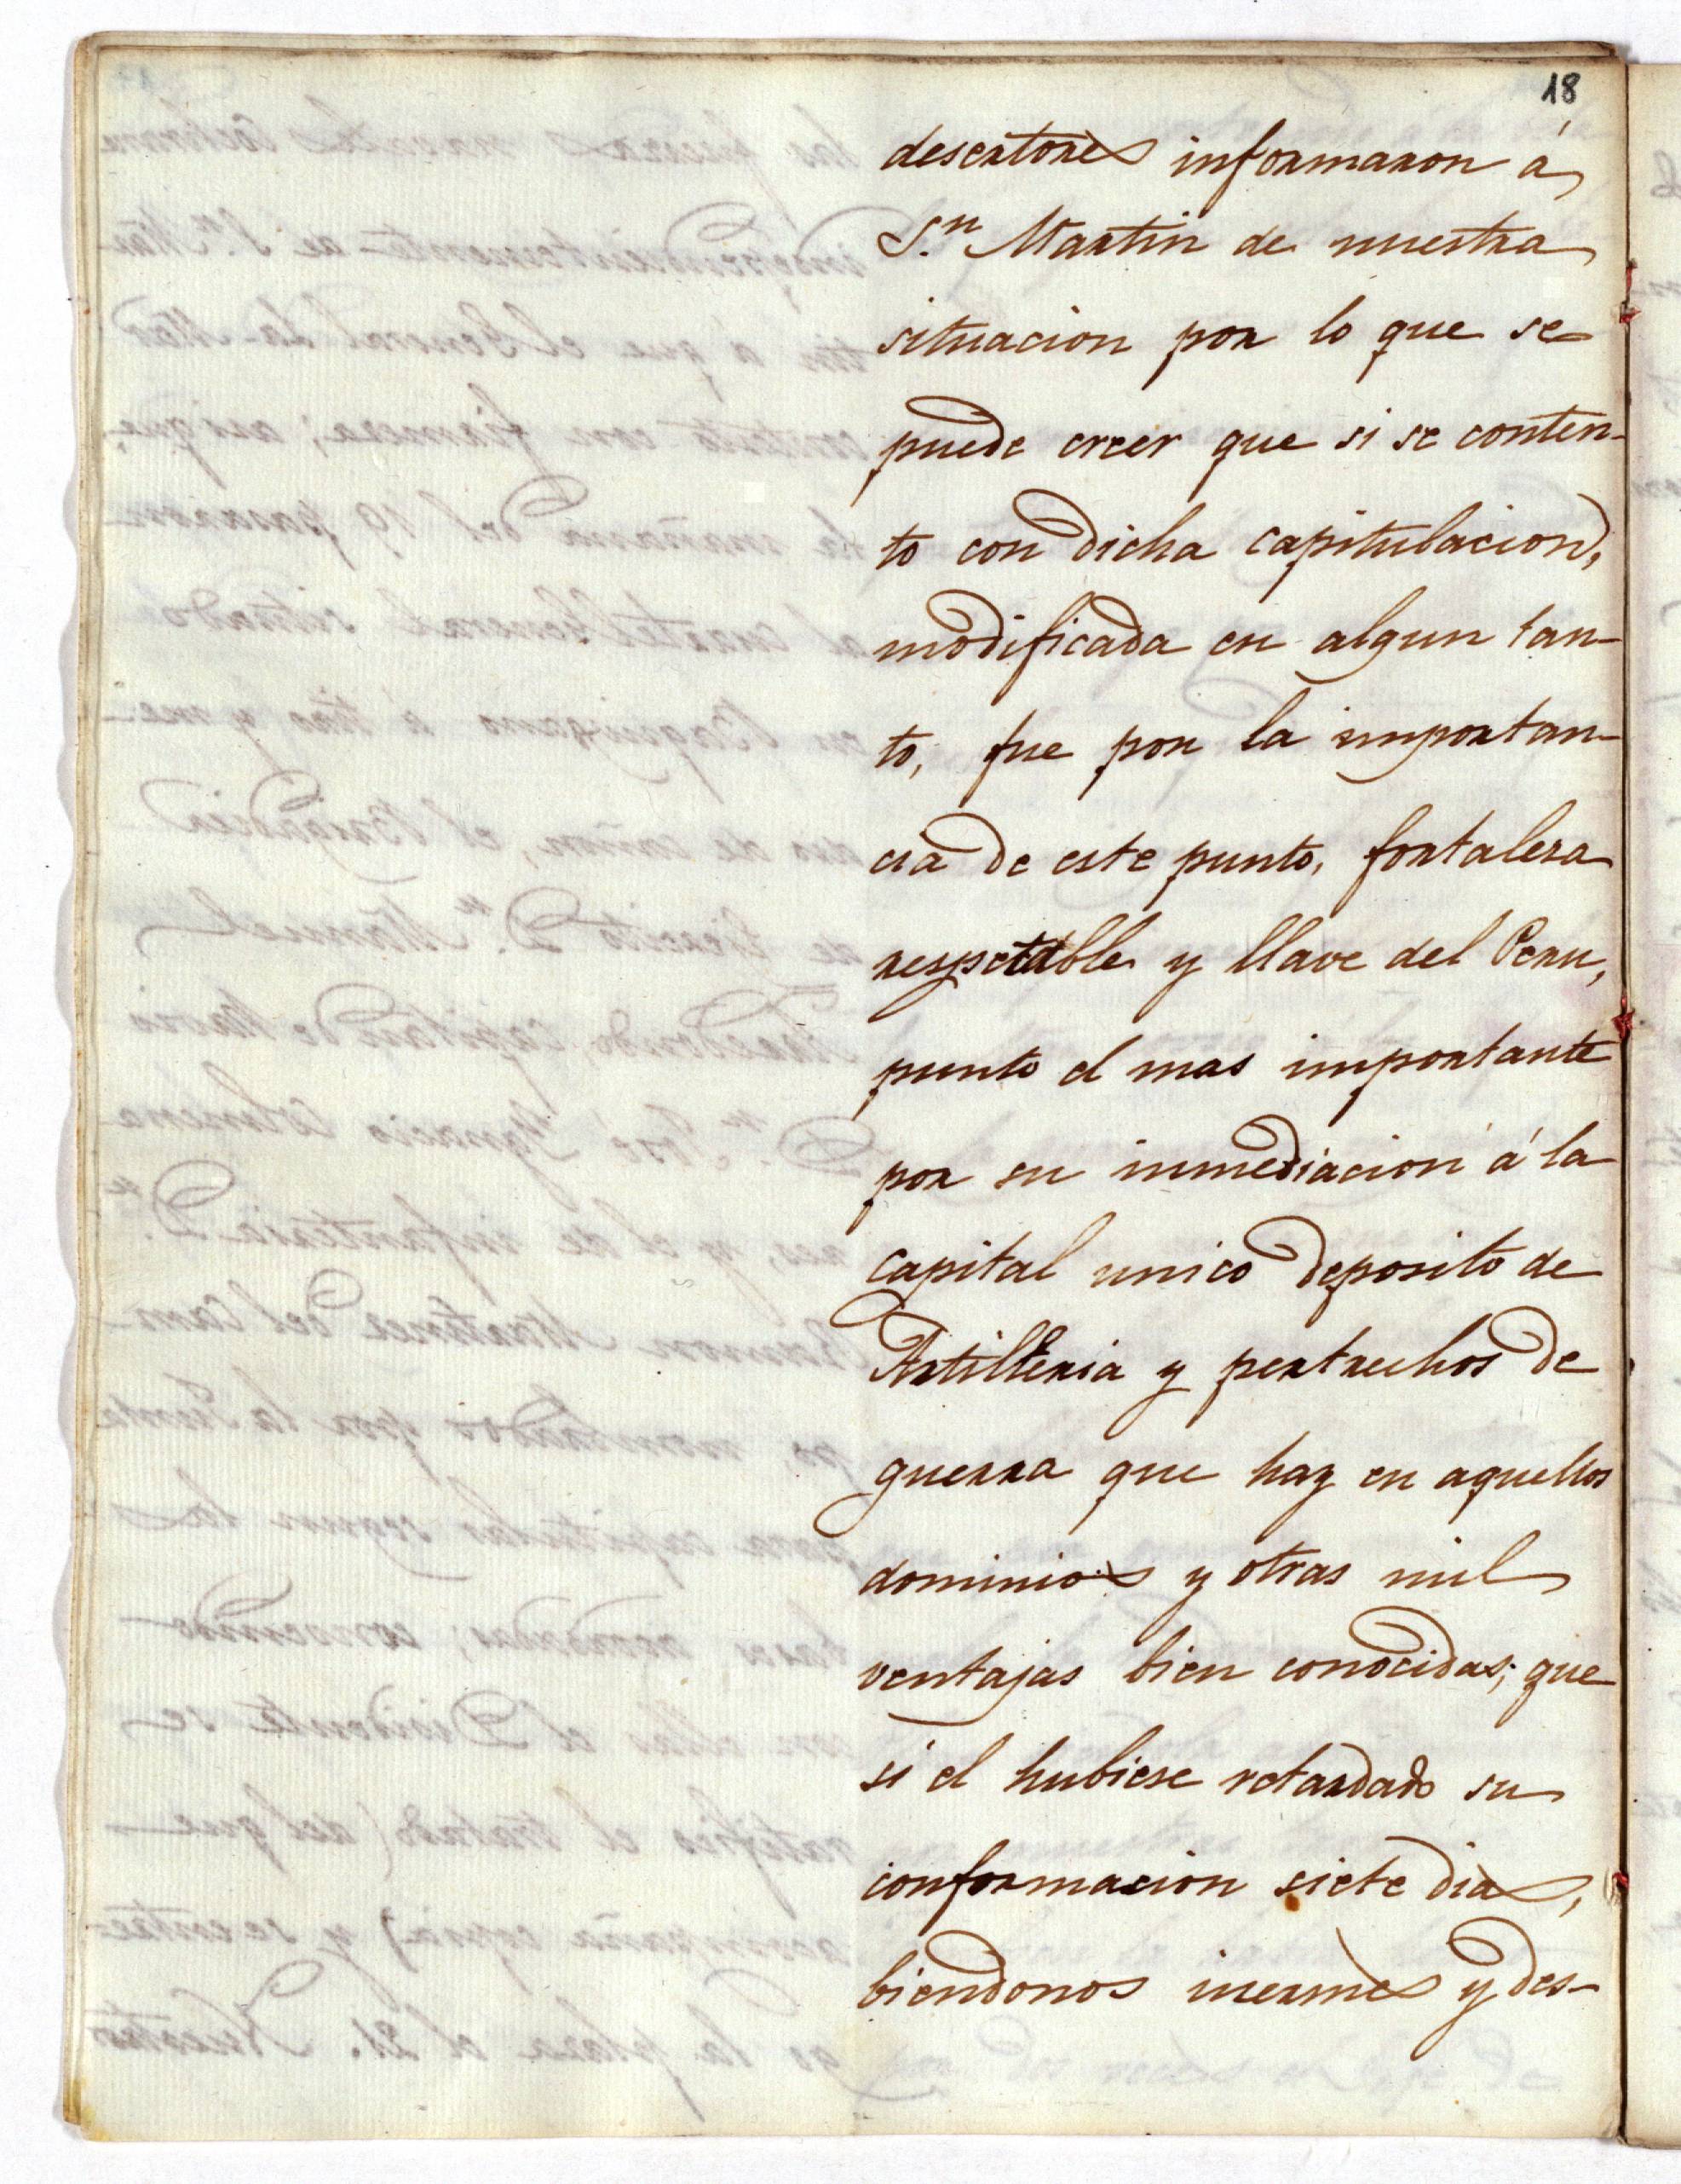 18
desertores informaron á
S.n Martin de nuestra
situacion por lo que se
puede creer que si se conten-
to con dicha capitulacion,
modificada en algun tan-
to, fue por la importan-
cia de este punto, fortalesa
respetable y llave del Peru,
punto el mas importante
por su inmediacion á la
capital unico deposito de
Artilleria y pertrechos de
guerra que hay en aquellos
dominios y otras mil
ventajas bien conocidas; que
si el hubiese retardado su
conformacion siete dias,
biendonos inermes y des-